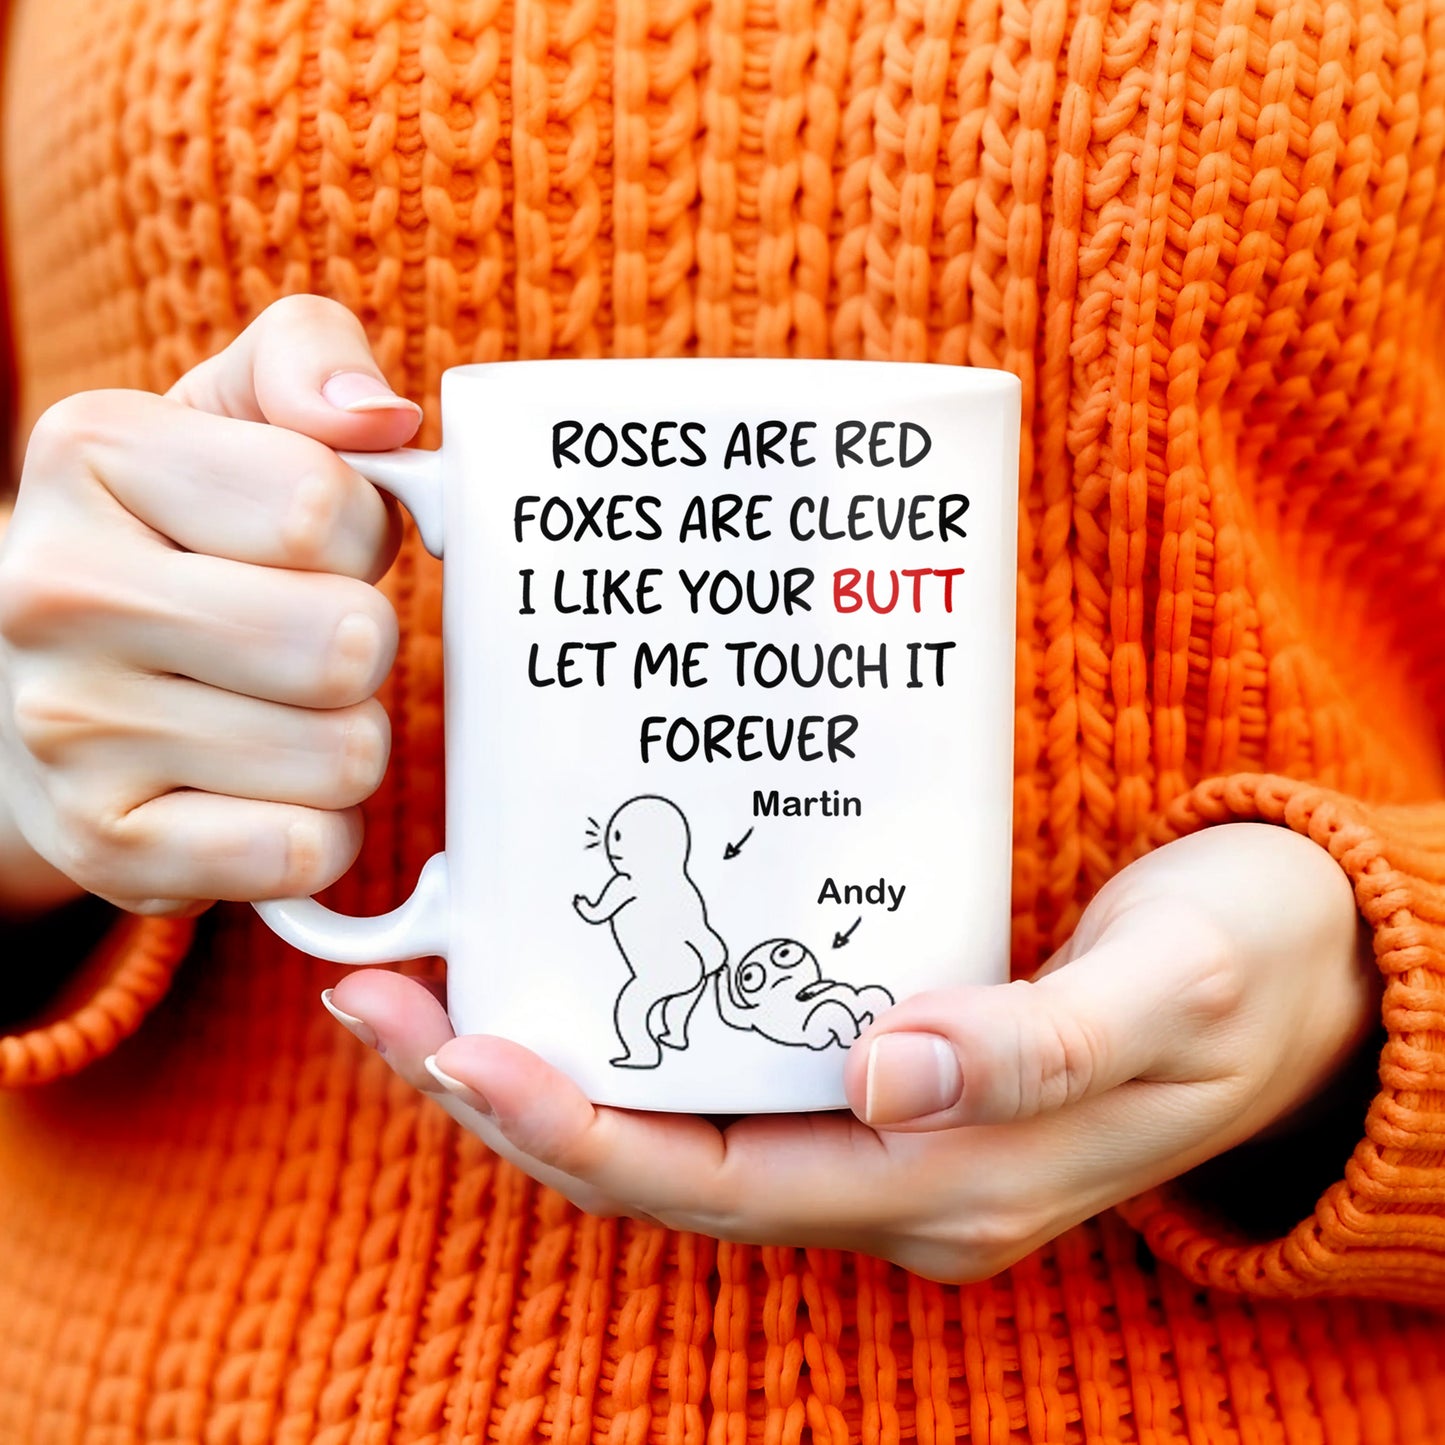 ROSES ARE RED
FOXES ARE CLEVER
I LIKE YOUR BUTT
LET ME TOUCH IT
FOREVER
Martin
Andy